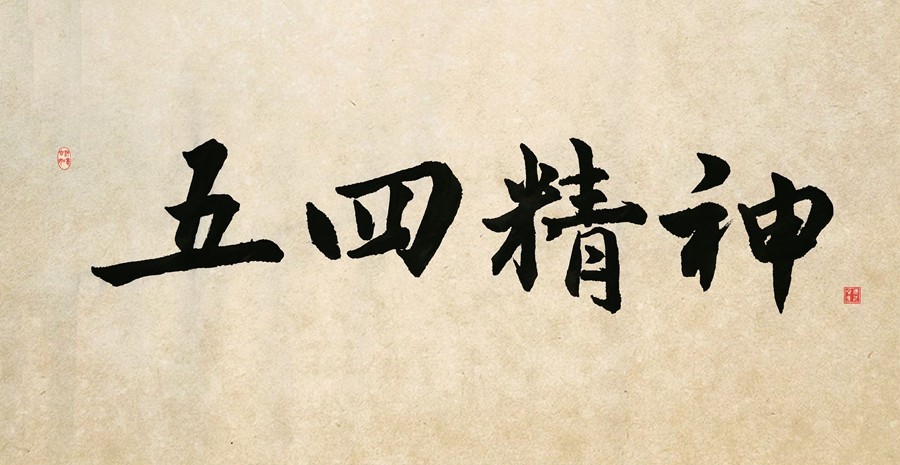 五四精神